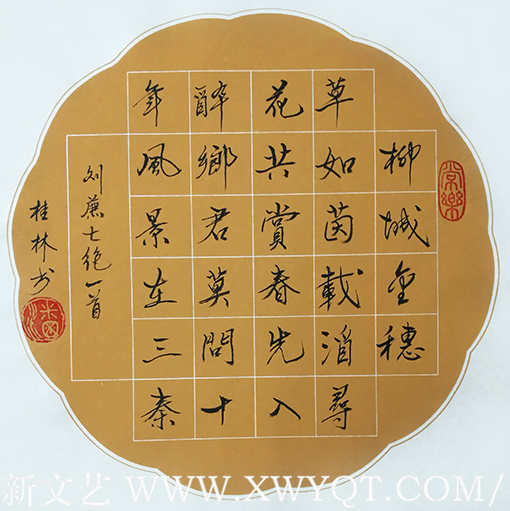 柳城金穗
草如茵載酒尋
花共賞春先入
醉鄉君莫問十
年風景在三秦
刘兼七絕一首
桂林书
常樂
新文艺 WWW.XWYQT.COM/